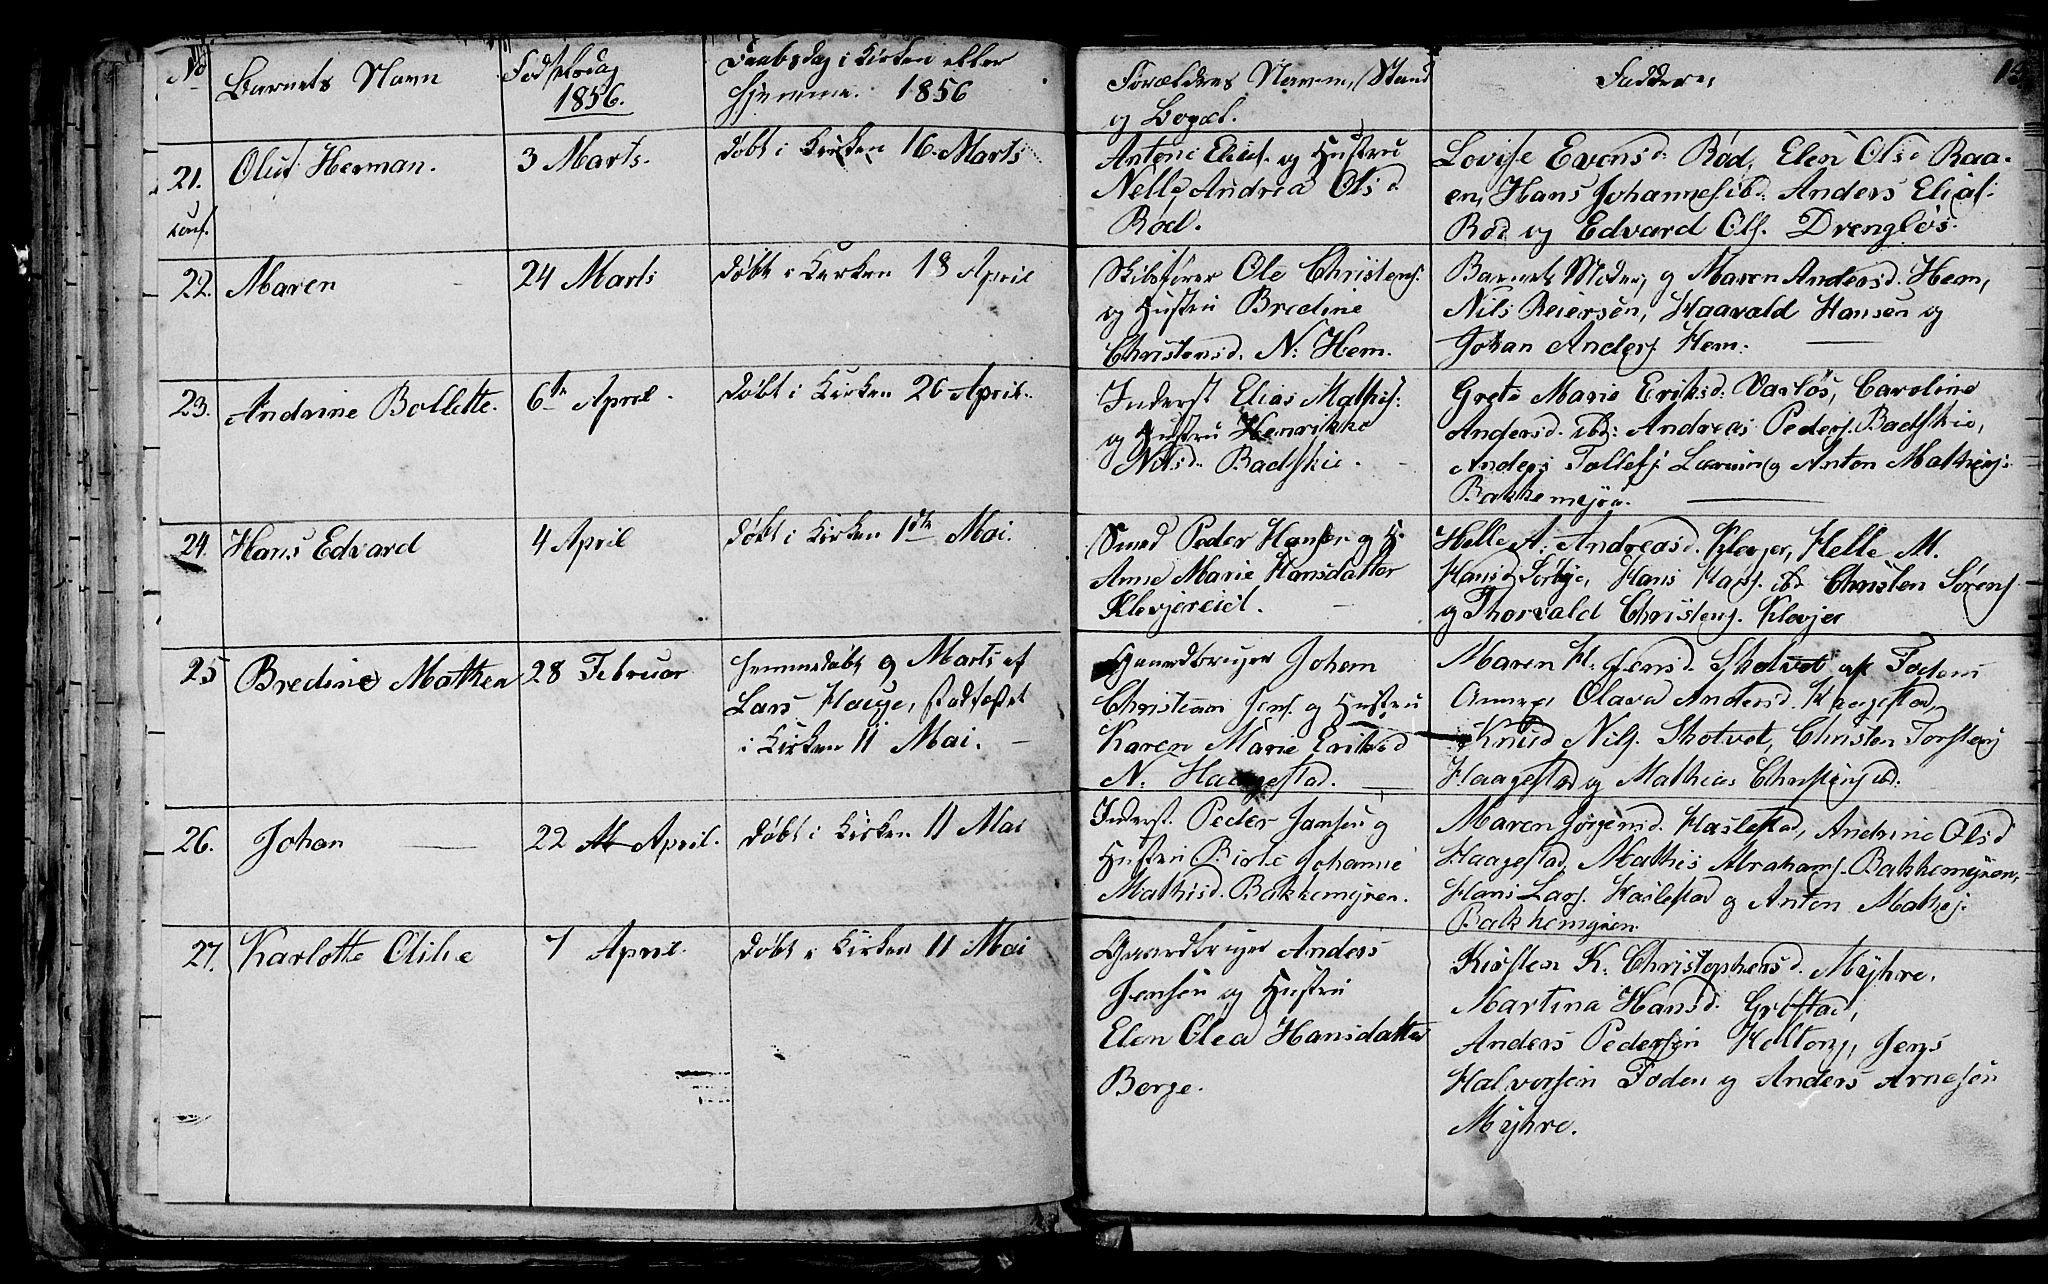 No Barnets Navn Fødselsdag 1856. Daabsdag i Kirken eller
Hjemme. 1856
Forældres Navne, Stand
og Bopæl.
Faddere,
21. Oluf Herman. 3 Marts. døbt i Kirken 16. Marts
Antoni Elias. og Hustru
Nelle Andrea Olsd
Rød.
Lovise Evensd. Rød, Elen Olsd Raa-
en, Hans Johannes. ibd. Anders Elias.
Rød og Edvard Ols. Drengløs.
22. Maren 24 Marts døbt i Kirken 13 April
Skibsfører Ole Christens.
og Hustru Bredine
Christensd. N: Hem.
Barnets Moder, og Maren Andersd. Hem,
Nils Reiersen, Haavald Hansen og
Johan Anders. Hem.
23. Andrine Bollette. 6te April. døbt i Kirken 26 April.
Inderst Elias Mathis.
og Hustru Henrikke
Nilsd. Badskie.
Grete Marie Eriksd. Varløs, Caroline
Andersd. ibd: Andreas Peders. Badskie,
Anders Tollefs. og Anton Mathis.
Bakkemyra.
24. Hans Edvard 4 April døbt i Kirken 1ste Mai.
Smed Peder Hansen og H.
Anne Marie Hansdatter
Klevjereiet.
Helle A. Andreasd. Klevjer, Helle M.
Hansd. Hans Hans. ibd Christen Sørens.
og Thorvald Christens. Klevjer
25 Bredine Mathea 28 Februar hjemmedøbt 9 Marts af
Lars Hauge, stadfæstet
i Kirken 11 Mai.
Gaardbruger Johan
Christian Jens. og Hustru
Karen Marie Eriksd
N. Haagestad.
Maren H. Jensd. Skotvet af Foden
Annex, Olava Andersd. Haagestad,
Knud Nils. Skotvet, Christen Torstens.
Haagestad og Mathias Christens. ibd.
26. Johan 22 April. døbt i Kirken 11 Mai
Inderst. Peder Jansen og
Hustru Birte Johanne
Mathisd. Bakkemyren.
Maren Jørgensd. Haslestad, Andrine Olsd
Haagestad, Mathis Abrahams. Bakkemyren,
Hans Lars. Haslestad og Anton Mathis.
Bakkemyren
27. Karlotte Olilie 7 April. døbt i Kirken 11 Mai
Gaardbruger Anders
Jensen og Hustru
Elen Olea Hansdatter
Berge.
Kirsten K. Christophersd. Myhre,
Martina Hansd. Grøstad,
Anders Pedersen Holtong, Jens
Halvorsen Foden og Anders Arnesen
Myhre.